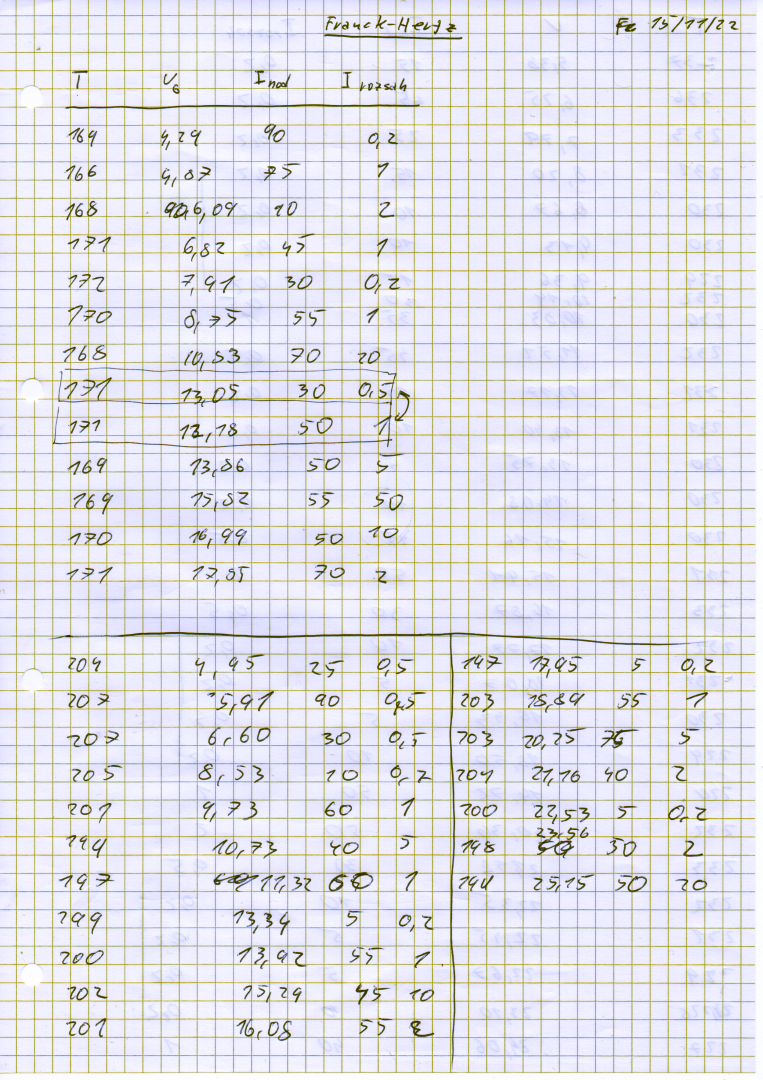 Franck-Hertz 15/11/22
T U_G I_nod I_rozsah
169 4,29 90 0,2
166 4,87 75 1
168 6,09 10 2
171 6,82 45 1
172 7,91 30 0,2
170 8,75 55 1
168 10,83 70 20
171 13,05 30 0,5
171 12,18 50 1
169 13,86 50 5
169 15,82 55 50
170 16,99 50 10
171 17,85 70 2
204 4,95 25 0,5
207 5,91 90 0,5
207 6,60 30 0,5
205 8,53 10 0,2
201 9,73 60 1
194 10,73 40 5
197 11,32 60 1
199 13,34 5 0,2
200 13,92 55 1
202 15,29 45 10
201 16,08 55 2
197 17,95 5 0,2
203 18,89 55 1
203 20,25 75 5
201 21,16 40 2
200 22,53 5 0,2
198 23,56 30 2
194 25,15 50 20